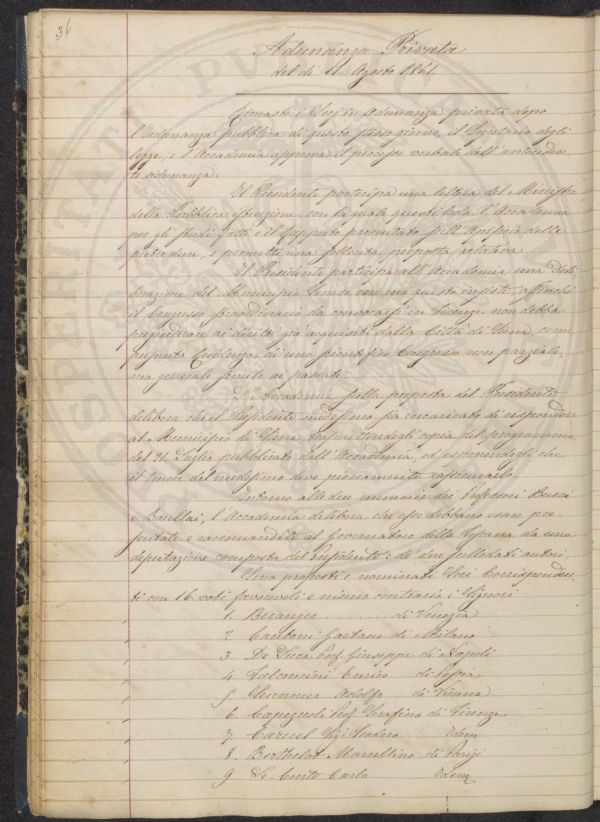 36
Adunanza Privata
del dì 11 Agosto 1861.
Rimasti i Socj in adunanza privata dopo
l'adunanza pubblica di questo stesso giorno, il Segretario degli
legge, e l'Accademia approva il processo verbale dell'anteceden
te adunanza.
Il Presidente partecipa una lettera del Ministro
della Pubblica istruzione, con la quale questi loda l'Accademia
per gli studi fatti e il rapporto presentato sull'
e promette una sollecita proposta relativa.
Il Presidente partecipa all'Accademia una Deli
berazione del Municipio Senese con cui questo affinchè
il Congresso straordinario da convocarsi in Firenze non debba
pregiudicare ai diritti già acquisiti dalla Città di Siena come
residenza di uno scientifico Congresso non parziale,
ma generale simile ai passati.
L'Accademia sulla proposta del Presidente
delibera che il Presidente medesimo sia incaricato di rispondere
al Municipio di Siena, trasmettendogli copia del programma
del 21 Luglio pubblicato dall'Accademia, ed esponendogli che
il tenore del medesimo deve pienamente rassicurarlo.
Intorno alle due memorie dei Professori
e Barellai, l'Accademia delibera che esse debbano essere pre-
sentate e raccomandate al Governatore della Toscana da una
deputazione composta del Presidente e de' due sullodati autori.
Sono proposti e nominati Soci Corrisponden
ti con 16 voti favorevoli e niuno contrario i Signori
1. Beranger ........ di Venezia
2. Gaetano di Milano
3 De Luca Prof. Giuseppe di Napoli
4. Falconcini Enrico di
5 Adolfo di Vienna
6. Capezzuoli Prof. Serafino di Firenze
7 Caruel Teodoro Idem
8. Berthelot Marcellino di Parigi
9 Le Conte Carlo Idem